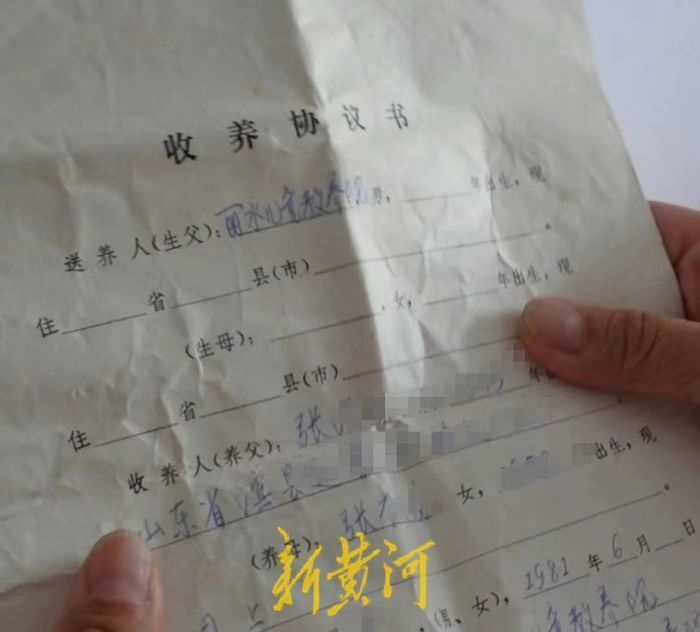 收养协议书
送养人(生父):丽水儿童教养院男,____年出生,现
住____省____县(市)____。
(生母):____,女,____年出生,现
住____省____县(市)____
收养人(养父):张
山东省滨县
出生,现
(养母):张 女,
1981年6月 日
(男、女),
童教养院
新黄河